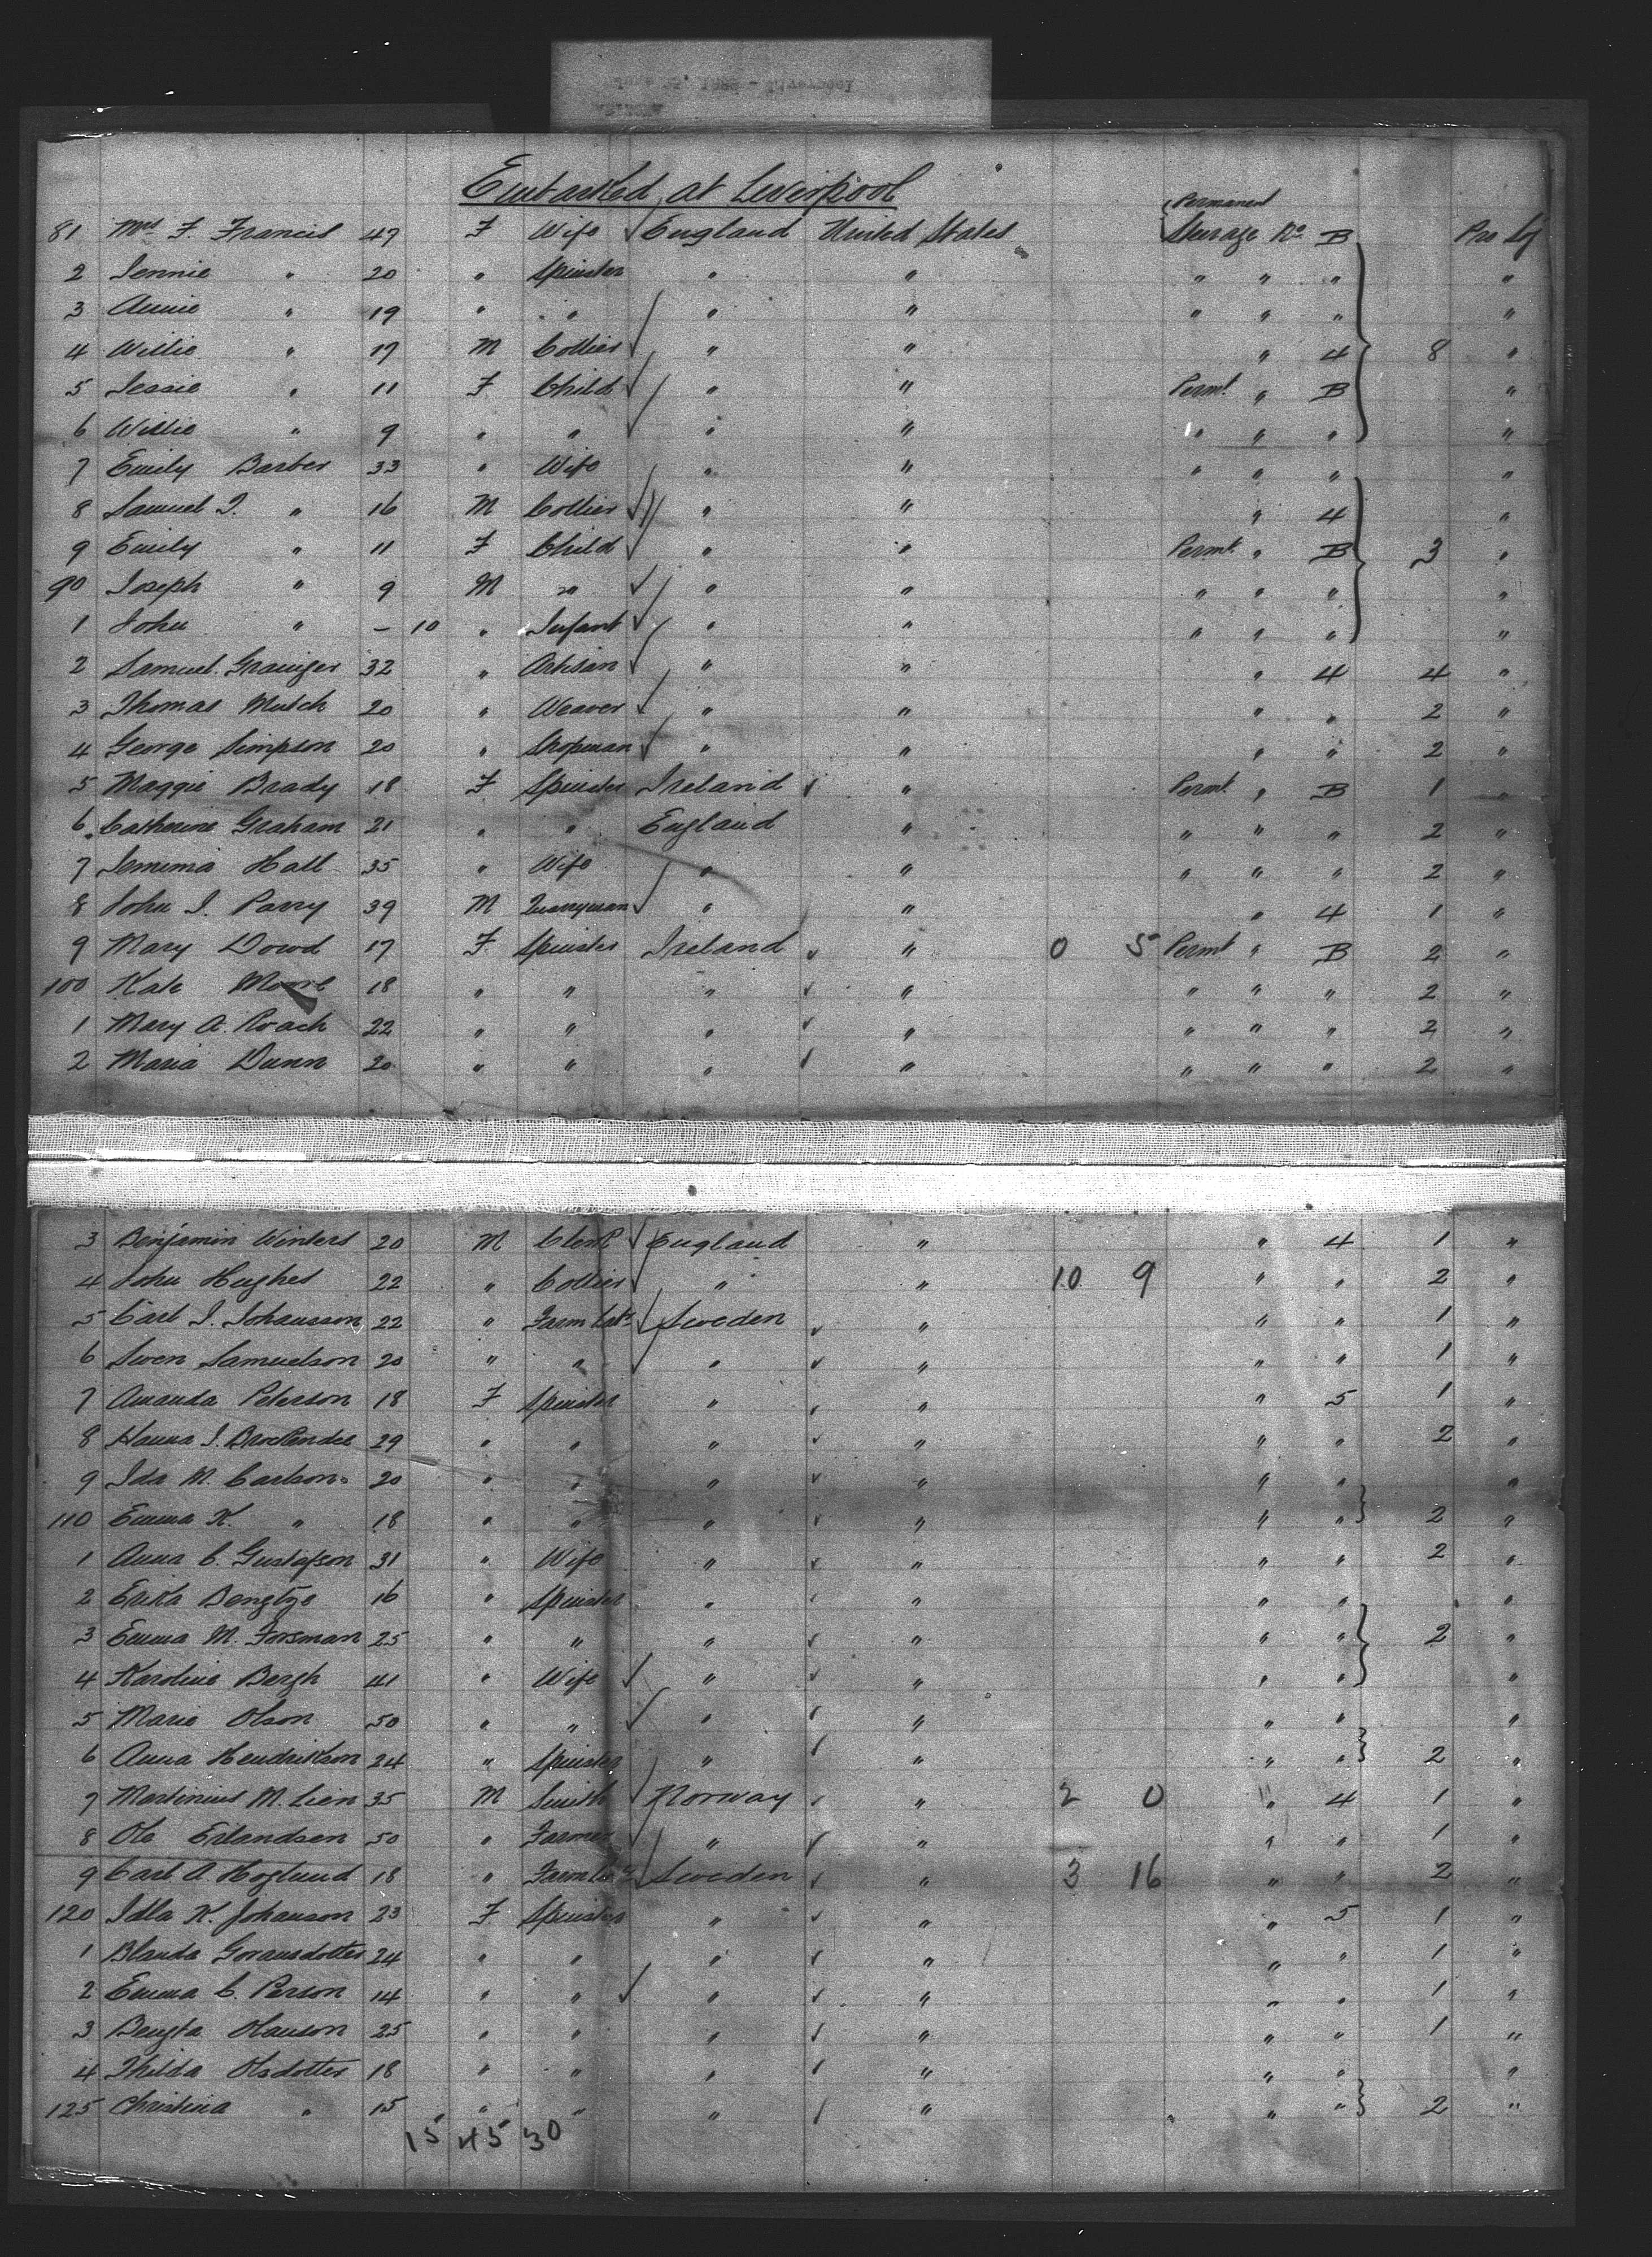 Embarked at Liverpool
Permanent
81 Mrs F. Francis 47 F Wife England United States Steerage No B Pro Sg
2 Jennie " 20 " Spinster " " " " " "
3 Annie " 19 " " " " " " " "
4 Willie " 17 M Collier " " " 4 8 "
5 Jessie " 11 F Child " " Permt. " B "
6 Willie " 9 " " " " " " " "
7 Emily Barber 33 " Wife " " " " " "
8 Samuel J. " 16 M Collier " " " 4 "
9 Emily " 11 F Child " " Permt. " B 3 "
90 Joseph " 9 M " " " " " " "
1 John " - 10 " Infant " " " " " "
2 Samuel Grainger 32 " Artisan " " " 4 4 "
3 Thomas Mutch 20 " Weaver " " " " 2 "
4 George Simpson 20 " Shopman " " " " 2 "
5 Maggie Brady 18 F Spinster Ireland " Permt. " B 1 "
6 Catherine Graham 21 " " England " " " " 2 "
7 Jemima Hall 35 " Wife " " " " " 2 "
8 John J. Parry 39 M Quarryman " " " 4 1 "
9 Mary Dowd 17 F Spinster Ireland " 0 5 Permt " B 2 "
100 Kate Moore 18 " " " " " " " 2 "
1 Mary A. Roach 22 " " " " " " " 2 "
2 Maria Dunn 20 " " " " " " " 2 "
3 Benjamin Winters 20 M Clerk England " " 4 1 "
4 John Hughes 22 " Collier " " 10 9 " " 2 "
5 Carl J. Johansson 22 " Farm Labr Sweden " " " 1 "
6 Swen Samuelson 20 " " " " " " 1 "
7 Amanda Peterson 18 F Spinster " " " 5 1 "
8 Hanna J. 29 " " " " " " 2 "
9 Ida M. Carlson 20 " " " " " " "
110 Emma K. " 18 " " " " " " 2 "
1 Anna C. Gustafson 31 " Wife " " " " 2 "
2 Erika 16 " Spinster " " " " "
3 Emma M. Forsman 25 " " " " " " 2 "
4 Karoline Bergh 41 " Wife " " " " "
5 Marie Olson 50 " " " " " " "
6 Anna Hendrikson 24 " Spinster " " " " 2 "
7 Martinius M. Lien 35 M Smith Norway " 2 0 " 4 1 "
8 Ole Erlandsen 50 " Farmer " " " " 1 "
9 Carl A. Hoglund 18 " Farm Labr Sweden " 3 16 " " 2 "
120 Idla K. Johanson 23 F Spinster " " " 5 1 "
1 Blanda Goransdotter 24 " " " " " " 1 "
2 Emma C. Person 14 " " " " " " 1 "
3 Bengta Hanson 25 " " " " " " 1 "
4 Thilda Olsdotter 18 " " " " " " "
125 Christina " 15 " " " " " " 2 "
15 45 30